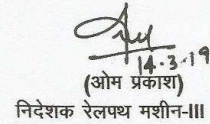 14-3-19
(ओम प्रकाश)
निदेशक रेलपथ मशीन-III